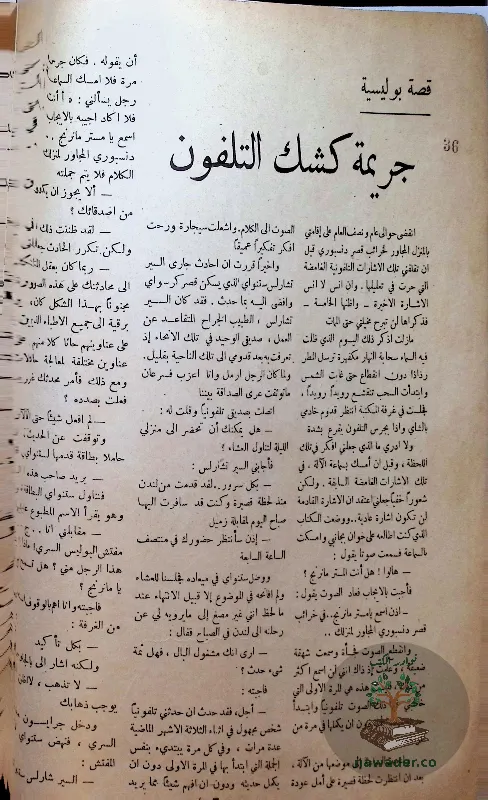 قصة بوليسية
جريمة كشك التلفون
36
انقضى حوالى عام ونصف العام على إقامتى
بالمنزل المجاور لخرائب قصر دنسبورى قبل
ان تقلقنى تلك الاشارات التلفونية الغامضة
التى حرت فى تعليلها . وان انس لا انس
الاشارة الاخيرة – واظنها الخامسة –
فذكراها لن تبرح مخيلتى حتى المات
مازلت اذكر ذلك اليوم الذى ظلت
فيه السماء سحابة النهار مكفهرة ترسل المطر
رذاذا دون انقطاع حتى غابت الشمس
وابتدأت السحب تنقشع رويداً رويداً ،
فجلست فى غرفة المكتبة انتظر قدوم خادمى
بالشاى واذا بجرس التلفون يقرع بشدة
ولا ادرى ما الذى جعلنى افكر فى تلك
اللحظة ، وقبل ان أمسك بسماعة الآلة ، فى
تلك الاشارات الغامضة السابقة . ولكن
شعوراً خفياً جعلنى اعتقد ان الاشارة القادمة
لن تكون اشارة عادية .. ووضعت الكتاب
الذى كنت اطالعه على خوان بجانبى وامسكت
بالسماعة فسمعت صوتا يقول :
– هالو ! هل أنت المستر مارنج ؟
فأجبت بالايجاب فعاد الصوت يقول :
– اذن اسمع يا مستر مارنج .. فى خرائب
قصر دنسبورى المجاور لمنزلك ..
وانقطع الصوت فجأة وسمعت شهقة
ضعيفة ، وعلمت إذ ذاك اننى لن اسمع اكثر
هذه هى المرة الاولى التى
ذلك الصوت تلفونيا وابتدأ
ان يكملها فى مرة من
الى موضعها من الآلة ،
بعد ان انتظرت لحظة قصيرة على أمل عودة
الصوت الى الكلام. واشعلت سيجارة ورحت
افكر تفكيراً عميقاً
واخيراً قررت ان احادث جارى السير
تشارلس ستنواى الذى يسكن قصر كر – واى
وافضى اليه بما حدث . فقد كان السير
تشارلس ، الطبيب الجراح المتقاعد عن
العمل ، صديقى الوحيد فى تلك الانحاء إذ
تعرفت به بعد قدومى الى تلك الناحية بقليل.
ولما كان الرجل ارمل وانا اعزب فسرعان
ما توثقت عرى الصداقة بيننا
اتصلت بصديقى تلفونياً وقلت له :
– هل يمكنك أن تحضر الى منزلى
الليلة لتناول العشاء ؟
فأجابنى السير تشارلس :
– بكل سرور .. لقد قدمت من لندن
منذ لحظة قصيرة وكنت قد سافرت اليها
صباح اليوم لمقابلة زميل
– إذن سأنتظر حضورك فى منتصف
الساعة السابعة
ووصل ستنواى فى ميعاده فجلسنا للعشاء
ولم افاتحه فى الموضوع إلا قبيل الانتهاء عند
ما لاحظ انى غير مصغ إلى ما يرويه لى عن
رحلته الى لندن فى الصباح فقال :
– ارى انك مشغول البال ، فهل ثمة
شىء حدث ؟
فاجبته :
– أجل ، فقد حدث ان حدثنى تلفونياً
شخص مجهول فى اثناء الثلاثة الاشهر الماضية
عدة مرات ، وفى كل مرة يبتدىء بنفس
الجملة التى ابتدأ بها فى المرة الاولى دون ان
يكمل حديثه ودون ان افهم شيئاً مما يريد
أن يقوله . فكان جرس
مرة فلا امسك السماعة
رجل يسألنى : « أأنت
فلا اكاد اجيبه بالايجاب
اسمع يا مستر مارنج ..
دنسبورى المجاور لمنزلك
الكلام فلا يتم جملته
– ألا يجوز ان يكون
من اصدقائك ؟
– لقد ظننت ذلك فى
ولكن تكرر الحادث
– ربما كان بعقل
الى محادثتك على هذه الصورة
مجنوناً بهذا الشكل كان
برقية الى جميع الاطباء الذين
على عناوينهم حاثا كلا منهم
عناوين مختلفة لمعالجة
ومع ذلك فأمر محدثك
فعلت بصدده ؟
– لم افعل شيئاً حتى الآن
وتوقفت عن الحديث
حاملا بطاقة قدمها لستنواى
– يريد صاحب هذه
فتناول ستنواى البطاقة
وهو يقرأ الاسم المطبوع
– مقابلتى أنا .. ج
مفتش البوليس السرى !
هذا الرجل منى ؟ هل
يا مارنج ؟
فاجبته وانا اهم بالوقوف
من الغرفة :
– بكل تأكيد
ولكنه اشار الى بالجلوس
– لا تذهب ،
يوجب ذهابك
ودخل جرابسون
السرى ، فنهض ستنواى
المفتش :
– السير تشارلس
نوادر الكتب
nawader.co